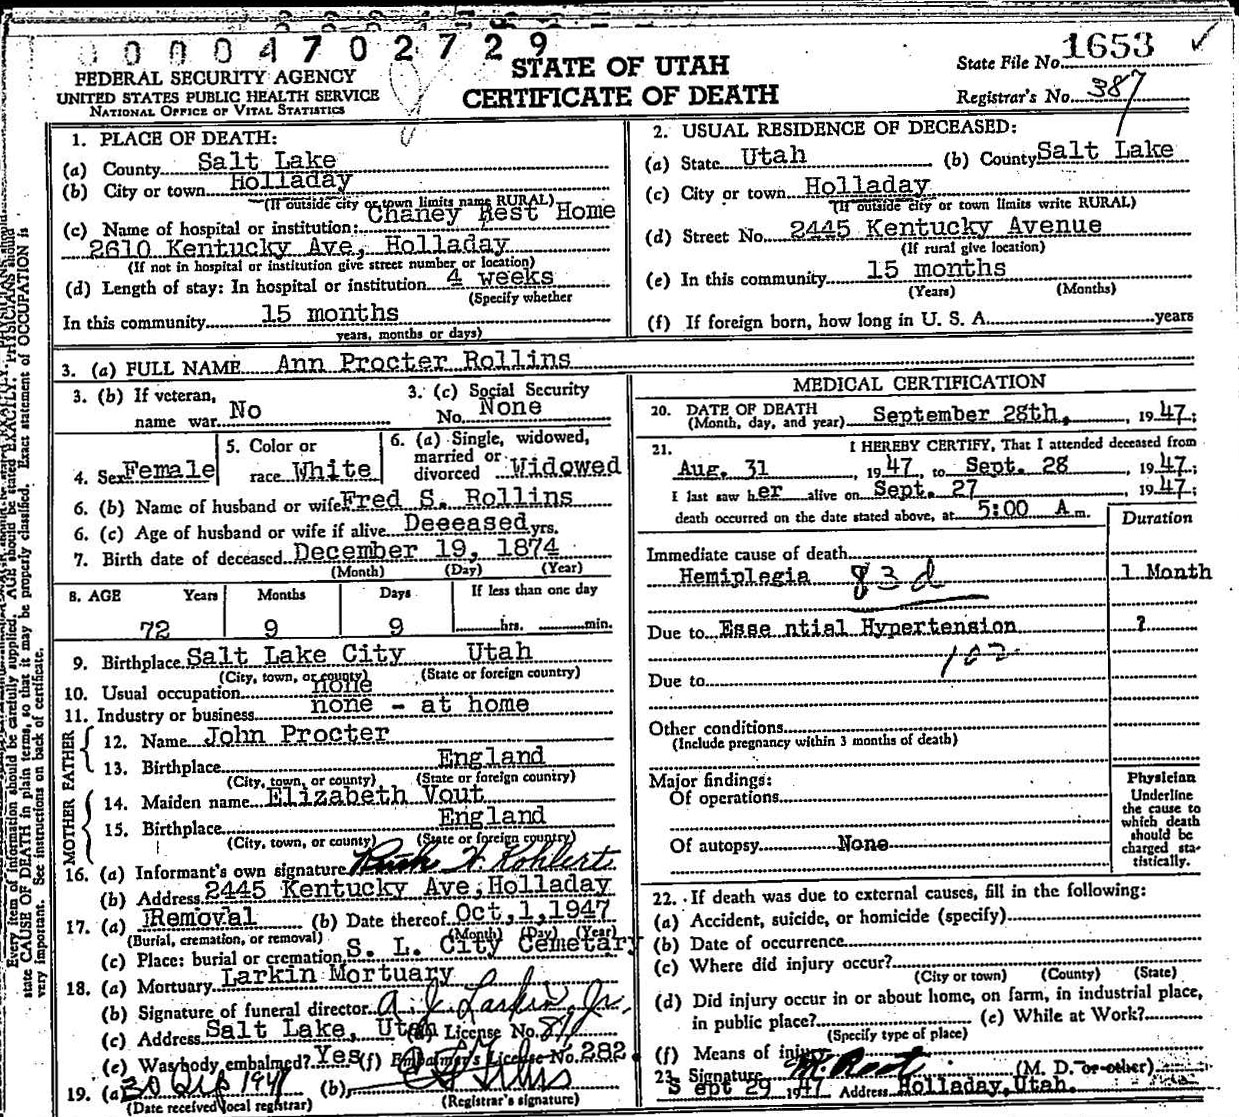 0 0 0 0 4 7 0 2 7 2 9
FEDERAL SECURITY AGENCY
UNITED STATES PUBLIC HEALTH SERVICE
NATIONAL OFFICE OF VITAL STATISTICS
STATE OF UTAH
CERTIFICATE OF DEATH
State File No. 1653
Registrar's No. 387
1. PLACE OF DEATH:
(a) County Salt Lake
(b) City or town Holladay
(If outside city or town limits name RURAL)
(c) Name of hospital or institution: Chaney Rest Home
2610 Kentucky Ave, Holladay
(If not in hospital or institution give street number or location)
(d) Length of stay: In hospital or institution 4 weeks
(Specify whether
In this community 15 months
years, months or days)
2. USUAL RESIDENCE OF DECEASED:
(a) State Utah (b) County Salt Lake
(c) City or town Holladay
(If outside city or town limits write RURAL)
(d) Street No. 2445 Kentucky Avenue
(If rural give location)
(e) In this community 15 months
(Years) (Months)
(f) If foreign born, how long in U. S. A. years
3. (a) FULL NAME Ann Procter Rollins
3. (b) If veteran,
name war No
3. (c) Social Security
No. None
4. Sex Female
5. Color or
race White
6. (a) Single, widowed,
married or
divorced Widowed
6. (b) Name of husband or wife Fred S. Rollins
6. (c) Age of husband or wife if alive Deeeased yrs.
7. Birth date of deceased December 19, 1874
(Month) (Day) (Year)
8. AGE Years Months Days If less than one day
72 9 9 hrs. min.
9. Birthplace Salt Lake City Utah
(City, town, or county) (State or foreign country)
10. Usual occupation none
11. Industry or business none - at home
FATHER
12. Name John Procter
13. Birthplace England
(City, town, or county) (State or foreign country)
MOTHER
14. Maiden name Elizabeth Vout
15. Birthplace England
(City, town, or county) (State or foreign country)
16. (a) Informant's own signature Ruth H. Kohlert
(b) Address 2445 Kentucky Ave, Holladay
17. (a) Removal (b) Date thereof Oct, 1, 1947
(Burial, cremation, or removal) (Month) (Day) (Year)
(c) Place: burial or cremation S. L. City Cemetary
18. (a) Mortuary Larkin Mortuary
(b) Signature of funeral director A. J. Larkin, Jr.
(c) Address Salt Lake, Utah (d) License No.
(e) Was body embalmed? Yes (f) Embalmer's License No. 282.
19. (a) 30 Sep 1947 (b)
(Date received local registrar) (Registrar's signature)
MEDICAL CERTIFICATION
20. DATE OF DEATH
(Month, day, and year) September 28th, , 1947;
21. I HEREBY CERTIFY, That I attended deceased from
Aug. 31 , 1947, to Sept. 28 , 1947;
I last saw her alive on Sept. 27 , 1947;
death occurred on the date stated above, at 5:00 A.m.
Duration
Immediate cause of death
Hemiplegia 83d 1 Month
Due to Esse ntial Hypertension ?
102
Due to
Other conditions
(Include pregnancy within 3 months of death)
Major findings:
Of operations
Of autopsy None
Physician
Underline
the cause to
which death
should be
charged sta-
tistically.
22. If death was due to external causes, fill in the following:
(a) Accident, suicide, or homicide (specify)
(b) Date of occurrence
(c) Where did injury occur?
(City or town) (County) (State)
(d) Did injury occur in or about home, on farm, in industrial place,
in public place? (e) While at Work?
(Specify type of place)
(f) Means of injury
23. Signature M. Root (M. D. or other)
Sept 29 1947 Address Holladay, Utah.
Every item of information should be carefully supplied. AGE should be stated EXACTLY. PHYSICIANS should
state CAUSE OF DEATH in plain terms, so that it may be properly classified. Exact statement of OCCUPATION is
very important. See instructions on back of certificate.